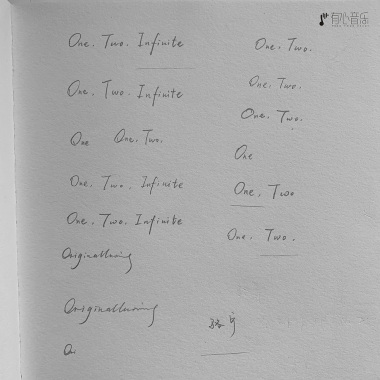 有心音乐
One. Two. Infinite
One. Two.
One. Two. Infinite
One. Two.
One. Two.
One One. Two.
One
One. Two. Infinite
One. Two
One. Two. Infinite
One. Two.